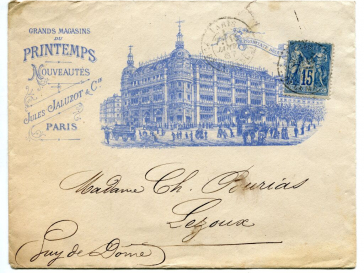 GRANDS MAGASINS
DU
PRINTEMPS
NOUVEAUTÉS
JULES JALUZOT & Cie
PARIS
15
Madame Ch. Burias
Lezoux
Puy de Dome